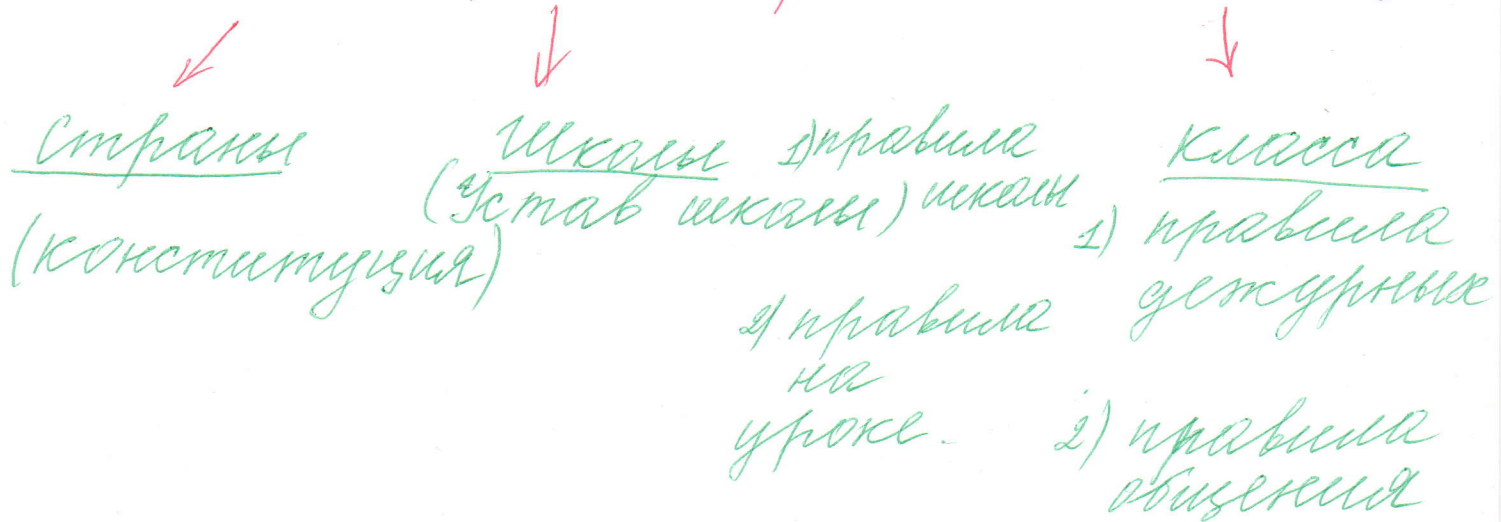 Страны
(конституция)
Школы
(Устав школы)
1) правила
школы
2) правила
на
уроке.
Класса
1) правила
дежурных
2) правила
общения